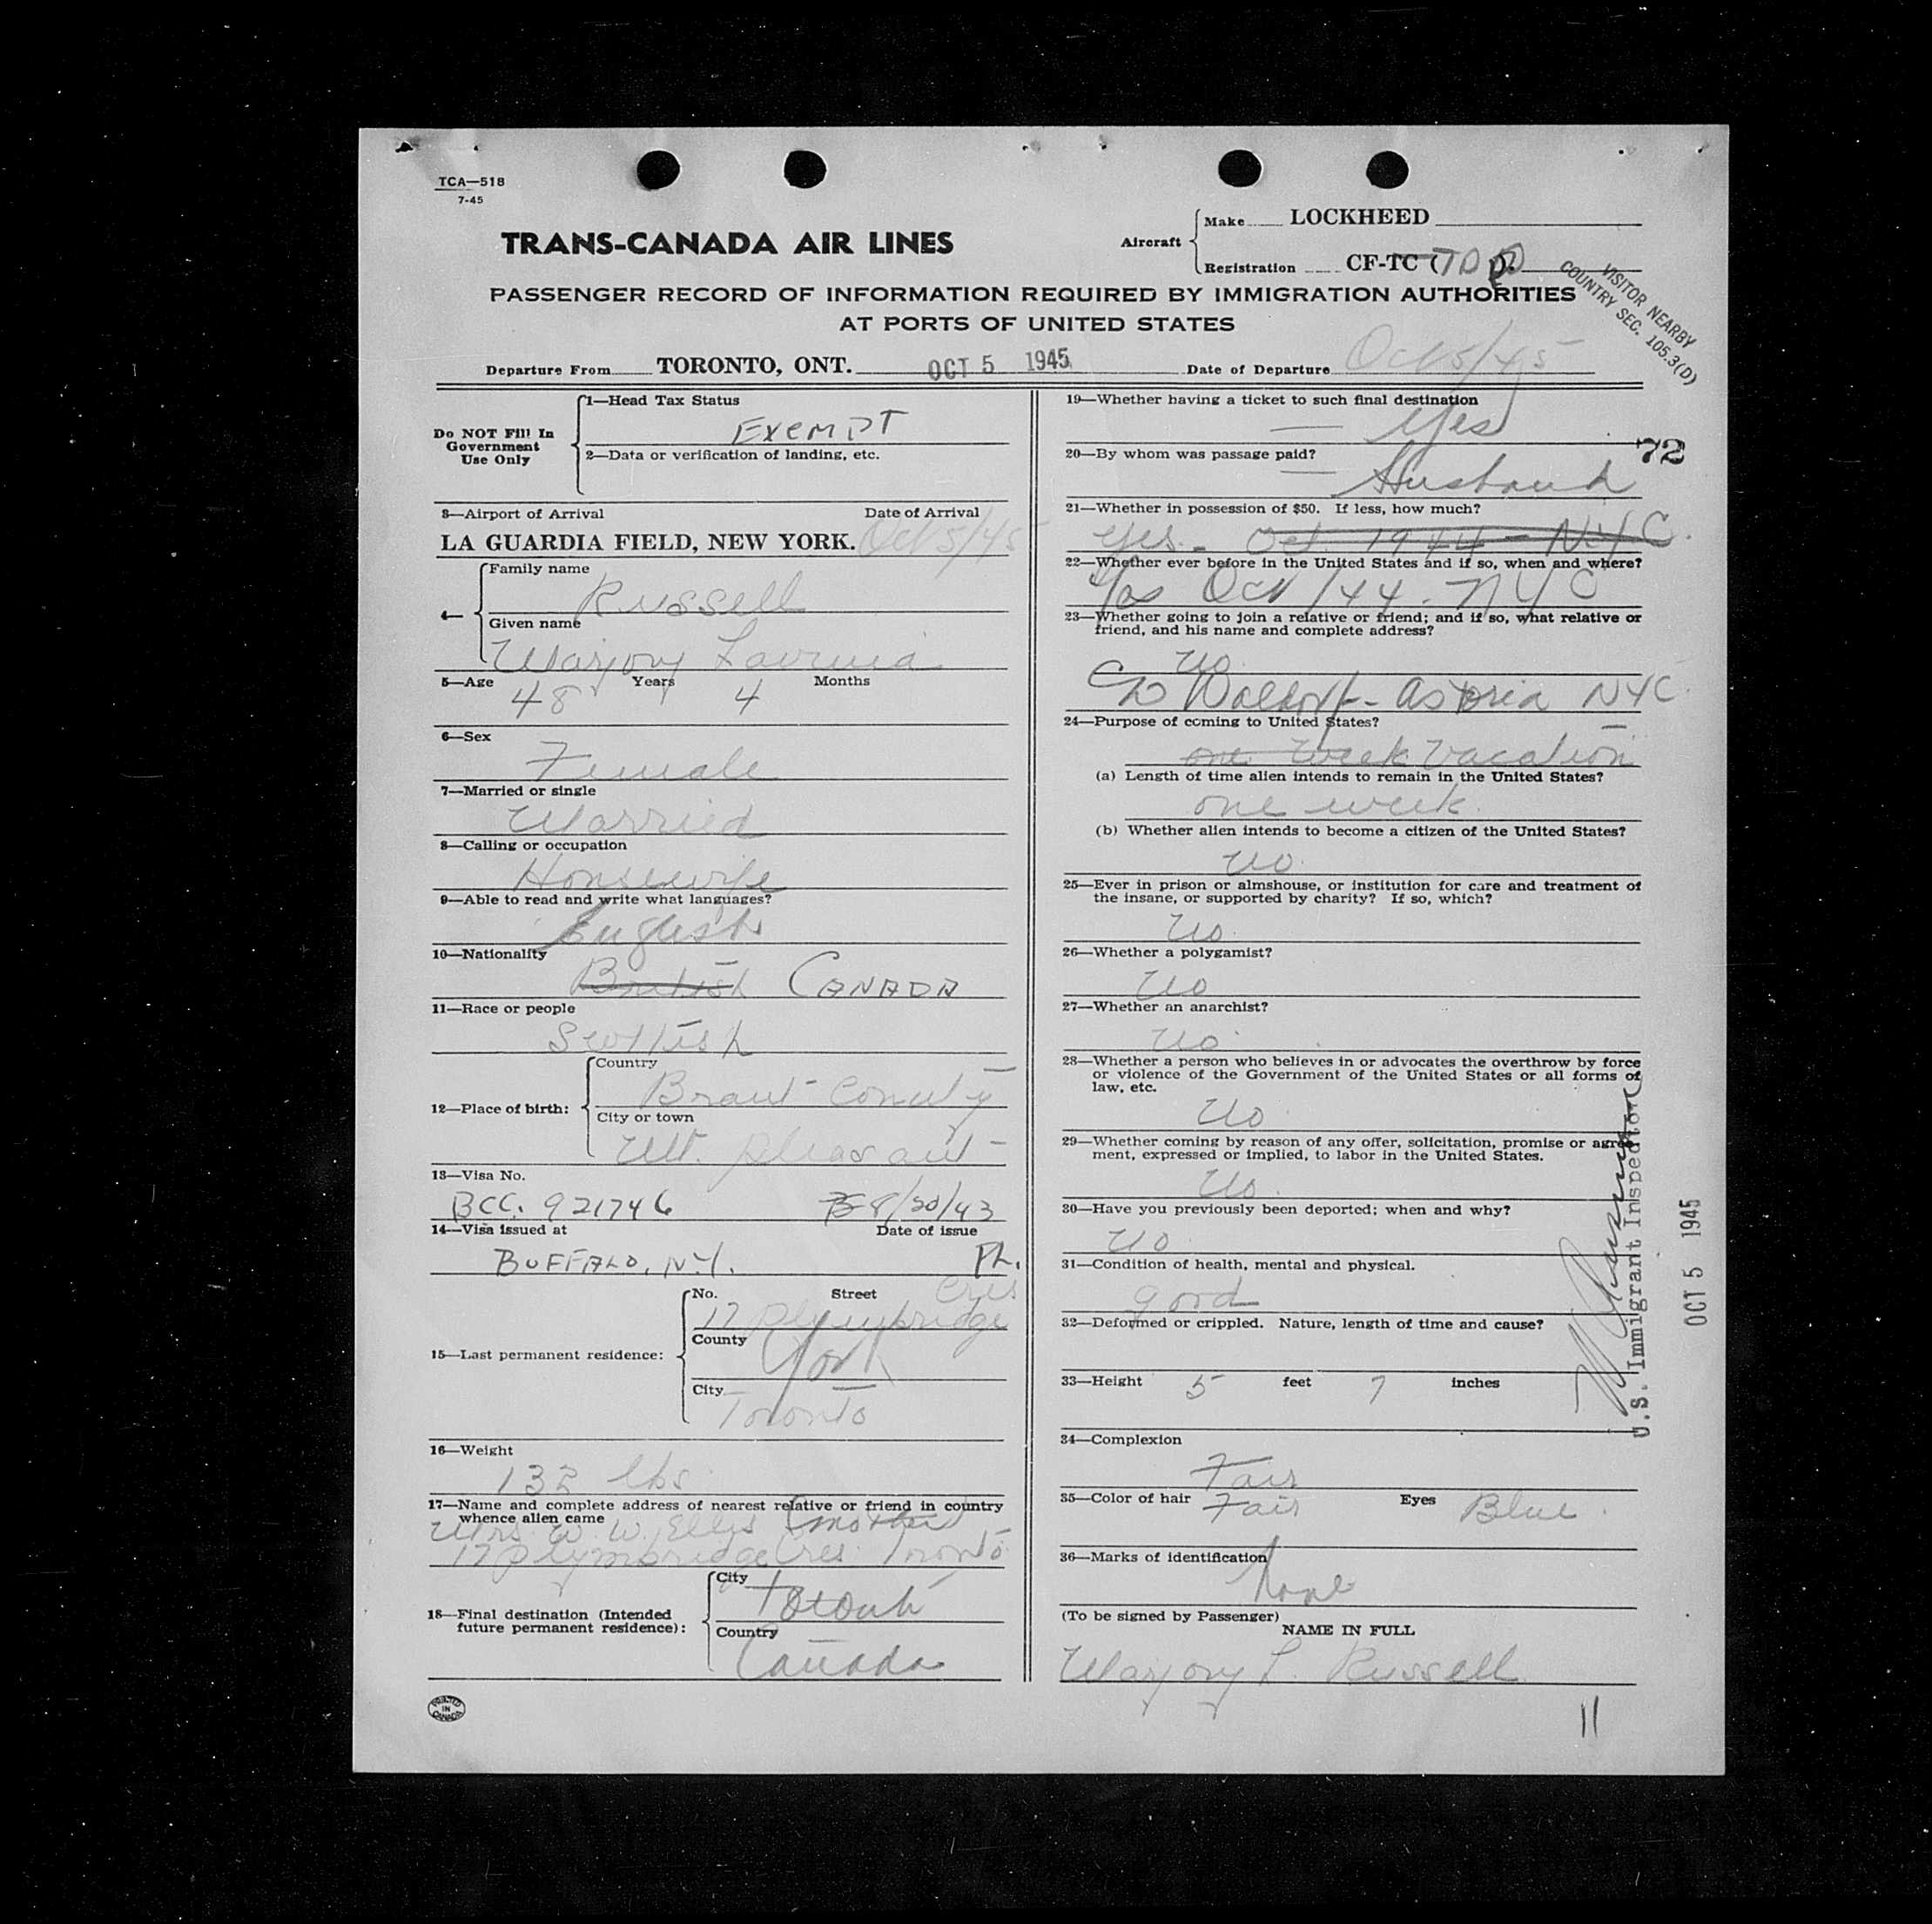 TCA—518
7-45
TRANS-CANADA AIR LINES
Aircraft
Make LOCKHEED
Registration CF-TC (TDD).
VISITOR NEARBY
COUNTRY SEC. 105.3(D)
PASSENGER RECORD OF INFORMATION REQUIRED BY IMMIGRATION AUTHORITIES
AT PORTS OF UNITED STATES
Departure From TORONTO, ONT. OCT 5 1945 Date of Departure Oct 5/45
Do NOT Fill In
Government
Use Only
1—Head Tax Status
Exempt
2—Data or verification of landing, etc.
3—Airport of Arrival Date of Arrival
LA GUARDIA FIELD, NEW YORK. Oct 5/45
4—
Family name
Russell
Given name
Marjory Lavinia
5—Age Years Months
48 4
6—Sex
Female
7—Married or single
Married
8—Calling or occupation
Housewife
9—Able to read and write what languages?
English
10—Nationality
British CANADA
11—Race or people
Scottish
12—Place of birth:
Country
Brant County
City or town
Mt. Pleasant
13—Visa No.
BCC. 921746 8/20/43
14—Visa issued at Date of issue
BUFFALO, N.Y.
15—Last permanent residence:
No. Street Cres
17 Plymbridge
County
York
City
Toronto
16—Weight
132 lbs
17—Name and complete address of nearest relative or friend in country
whence alien came
Mrs. W. W. Ellis (mother)
17 Plymbridge Cres. Toronto
18—Final destination (Intended
future permanent residence):
City
Toronto
Country
Canada
PRINTED
IN
CANADA
19—Whether having a ticket to such final destination
— Yes
72
20—By whom was passage paid?
— Husband
21—Whether in possession of $50. If less, how much?
Yes - Oct. 1944 - NYC.
22—Whether ever before in the United States and if so, when and where?
Yes Oct/44. NYC
23—Whether going to join a relative or friend; and if so, what relative or
friend, and his name and complete address?
No
c/o Waldorf-Astoria NYC.
24—Purpose of coming to United States?
one week vacation
(a) Length of time alien intends to remain in the United States?
one week.
(b) Whether alien intends to become a citizen of the United States?
No.
25—Ever in prison or almshouse, or institution for care and treatment of
the insane, or supported by charity? If so, which?
No.
26—Whether a polygamist?
No
27—Whether an anarchist?
No.
28—Whether a person who believes in or advocates the overthrow by force
or violence of the Government of the United States or all forms of
law, etc.
No
29—Whether coming by reason of any offer, solicitation, promise or agree-
ment, expressed or implied, to labor in the United States.
No.
30—Have you previously been deported; when and why?
No
31—Condition of health, mental and physical.
good
32—Deformed or crippled. Nature, length of time and cause?
33—Height 5 feet 7 inches
U.S. Immigrant Inspector
OCT 5 1945
34—Complexion
Fair
35—Color of hair Fair Eyes Blue.
36—Marks of identification
None
(To be signed by Passenger)
NAME IN FULL
Marjory L. Russell
11